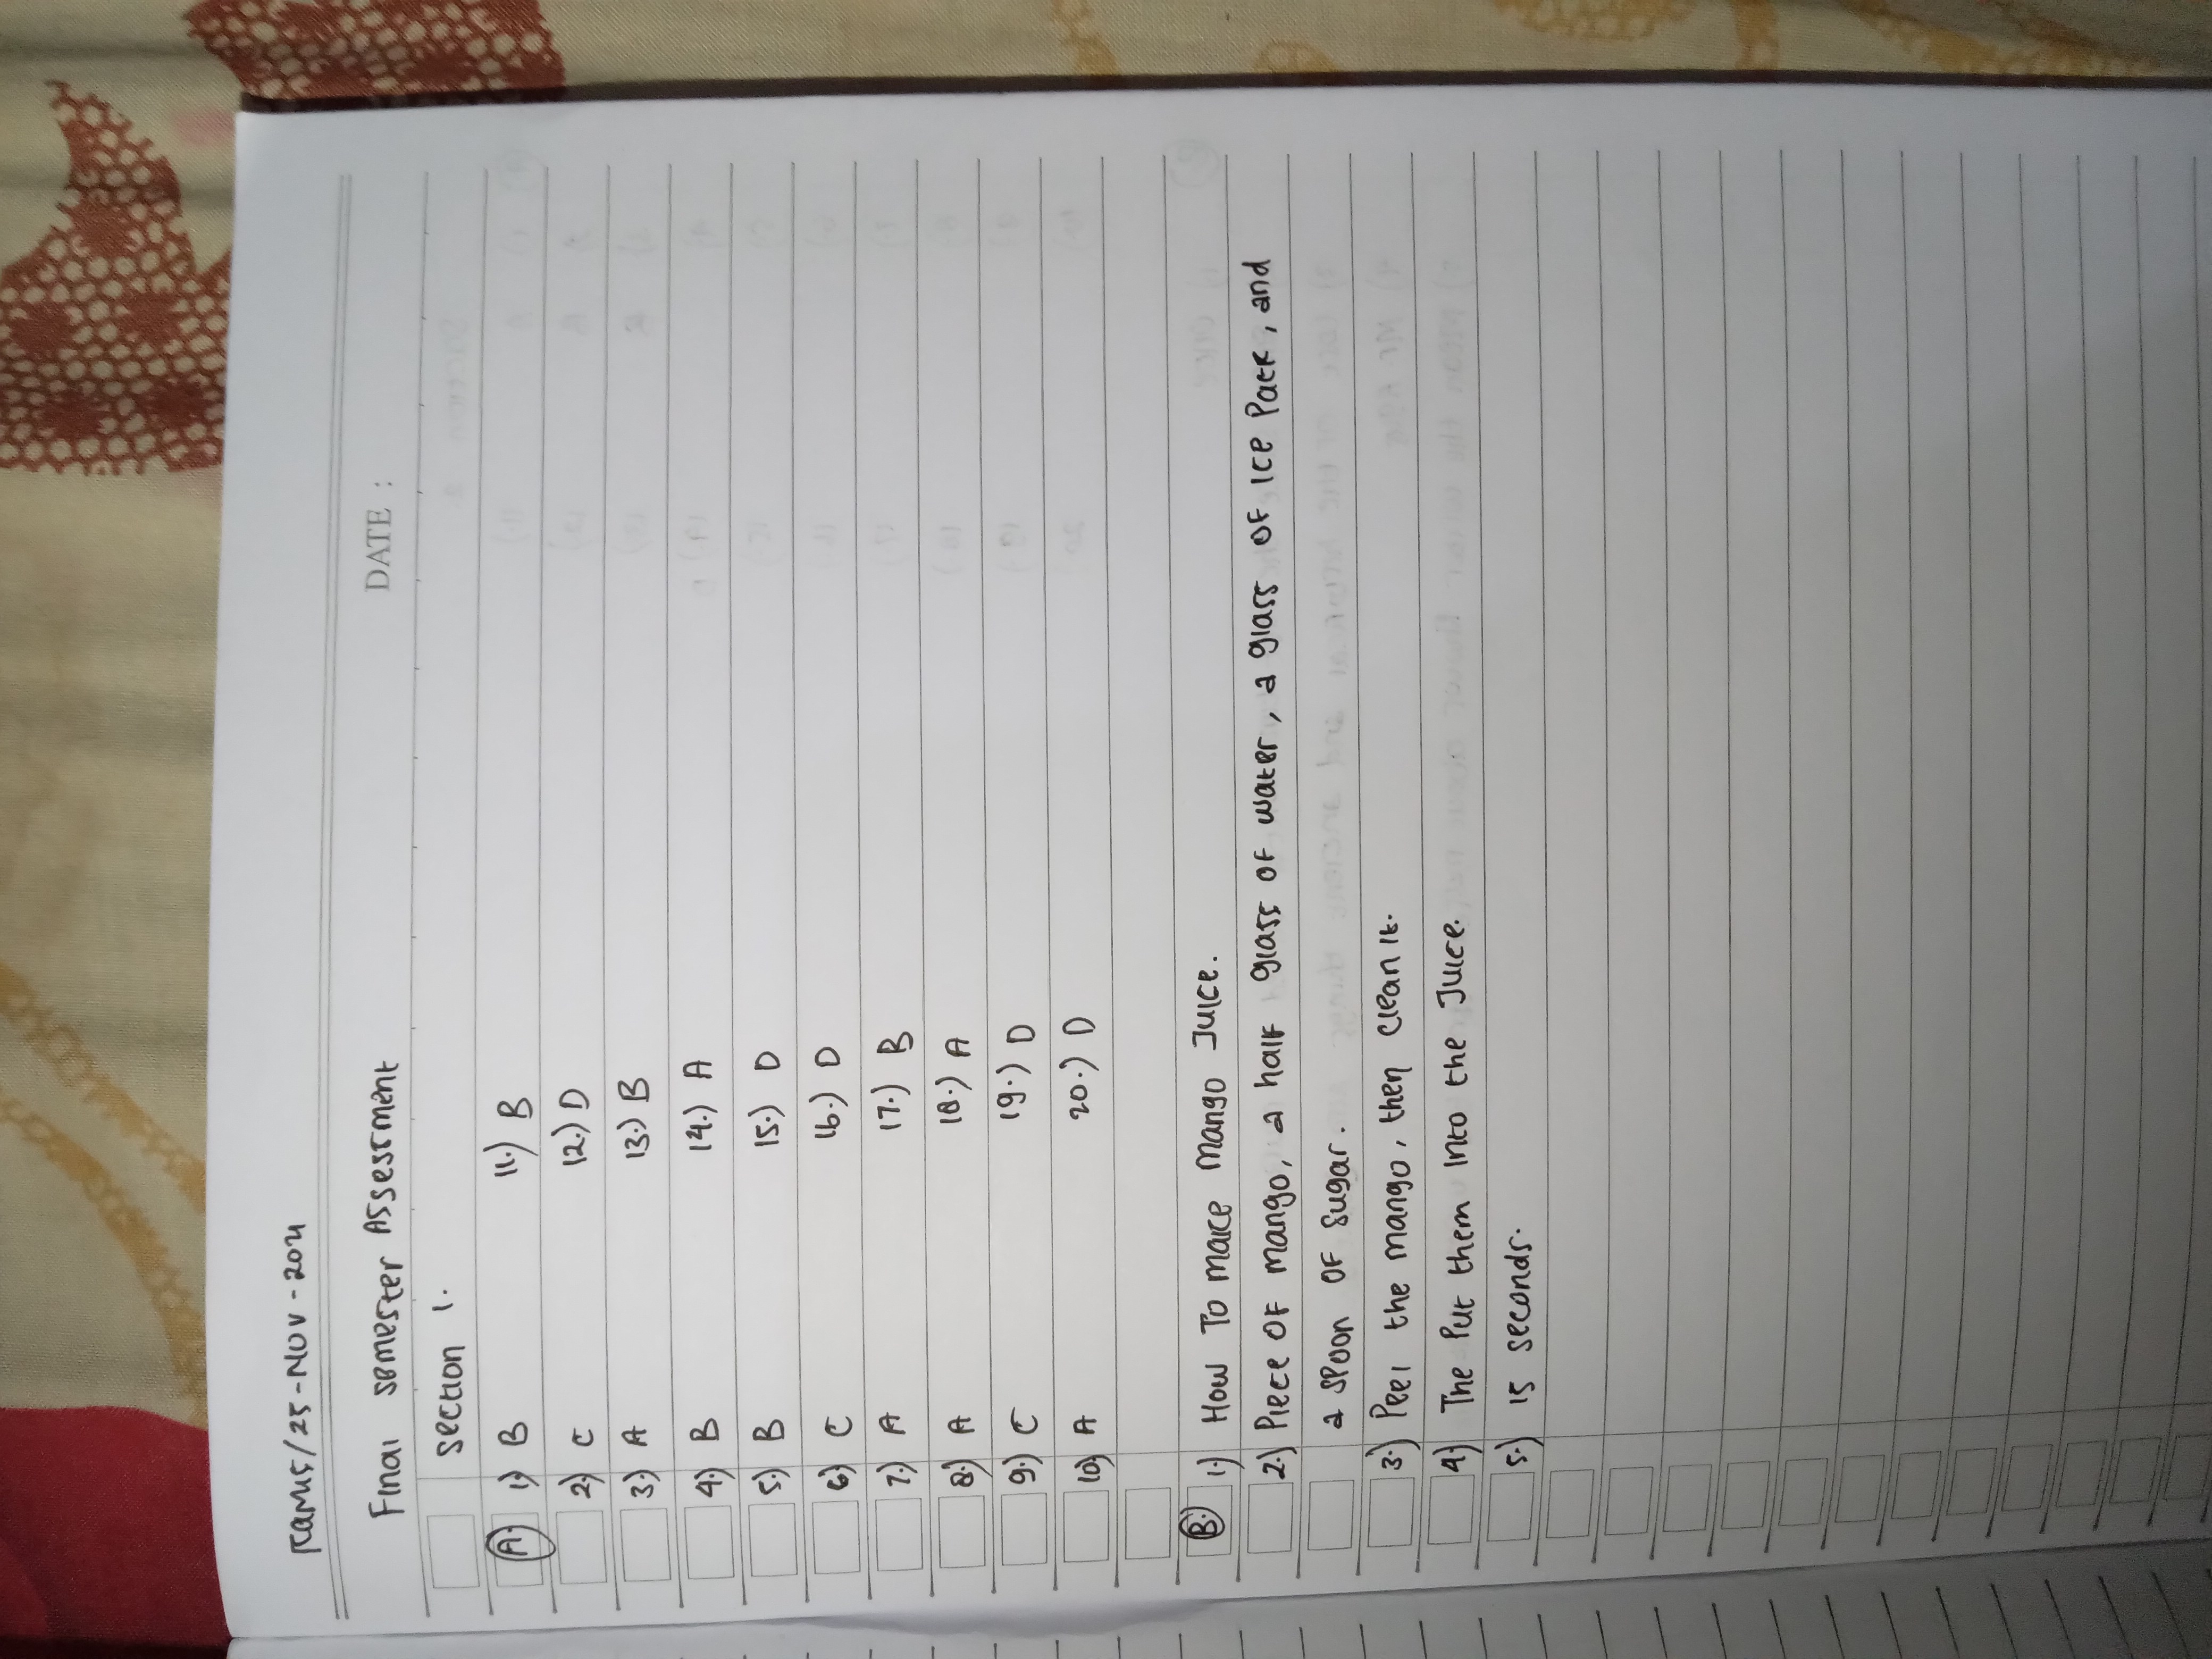 Kamis/25-Nov-2021
Final semester Assessment
DATE :
Section 1.
A. 1.) B 11.) B
2.) C 12.) D
3.) A 13.) B
4.) B 14.) A
5.) B 15.) D
6.) C 16.) D
7.) A 17.) B
8.) A 18.) A
9.) C 19.) D
10.) A 20.) D
B. 1.) How To make mango Juice.
2.) Piece OF mango, a half glass OF water, a glass OF Ice Pack, and
a spoon OF Sugar.
3.) Peel the mango, then clean it.
4.) The Put them Into the Juice.
5.) 15 seconds.